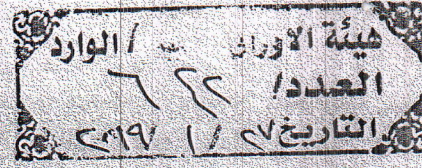 هيئة الاوراق / الوارد
العدد/ ٦٢٢
التاريخ ٢٧ / ١ / ٢٠١٩